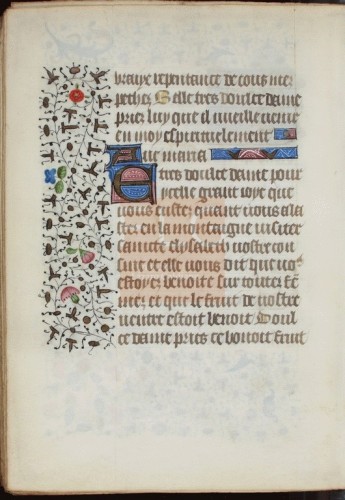 vraye repentance de tous mes
pechez Belle tres doulce dame
pries luy que il vueille venir
en moy espirituelement
Aue maria
E tres doulce dame pour
ycelle grant ioye que
vous eustes quant vous ala
stes en la montaigne visiter
saincte elysabeth vostre cou
sine et elle vous dit que vo9
estoyes benoite sur toutes fẽ
mes et que le fruit de vostre
ventre estoit benoit Doul
ce dame pries ce benoit fruit